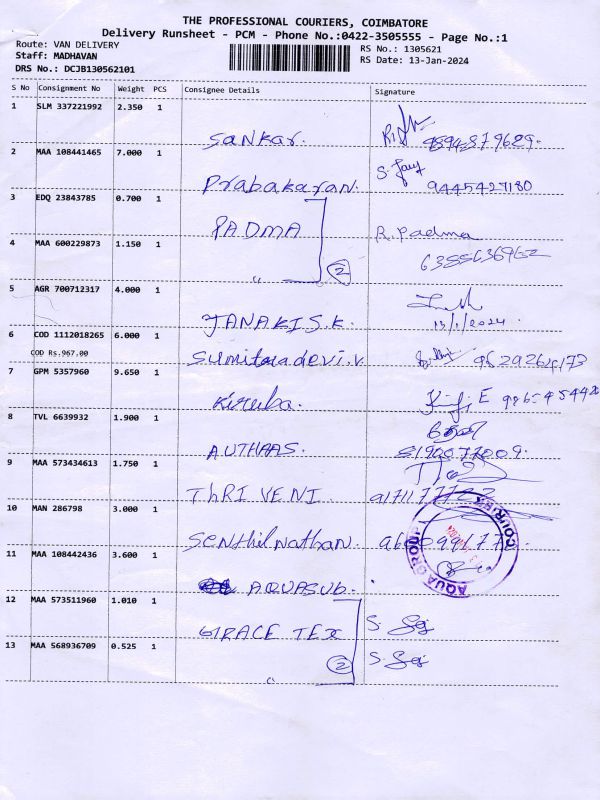 THE PROFESSIONAL COURIERS, COIMBATORE
Delivery Runsheet - PCM - Phone No.:0422-3505555 - Page No.:1
Route: VAN DELIVERY
Staff: MADHAVAN
DRS No.: DCJB130562101
RS No.: 1305621
RS Date: 13-Jan-2024
S No Consignment No Weight PCS Consignee Details Signature
1 SLM 337221992 2.350 1
Sankar. 9894879629.
2 MAA 108441465 7.000 1
Prabakaran. 9445427180
3 EDQ 23843785 0.700 1
PADMA R. Padma
4 MAA 600229873 1.150 1
" 2 6385636962
5 AGR 700712317 4.000 1
JANAKI S.K. 13/1/2024.
6 COD 1112018265 6.000 1
COD Rs.967.00
Sumitradevi.V
7 GPM 5357960 9.650 1
Kiruba. E
8 TVL 6639932 1.900 1
8190077009.
9 MAA 573434613 1.750 1
THRIVENI
10 MAN 286798 3.000 1
Senthilnathan.
11 MAA 108442436 3.600 1
AQUASUB.
AQUA GROUP
COURIER
12 MAA 573511960 1.010 1
GRACE TEX S.
13 MAA 568936709 0.525 1
" 2 S.